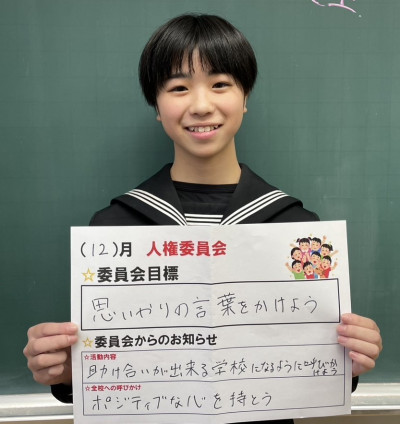 (12)月 人権委員会
☆委員会目標
思いやりの言葉をかけよう
☆委員会からのお知らせ
☆活動内容
助け合いが出来る学校になるように呼びか
けよう
☆全校への呼びかけ
ポジティブな心を持とう